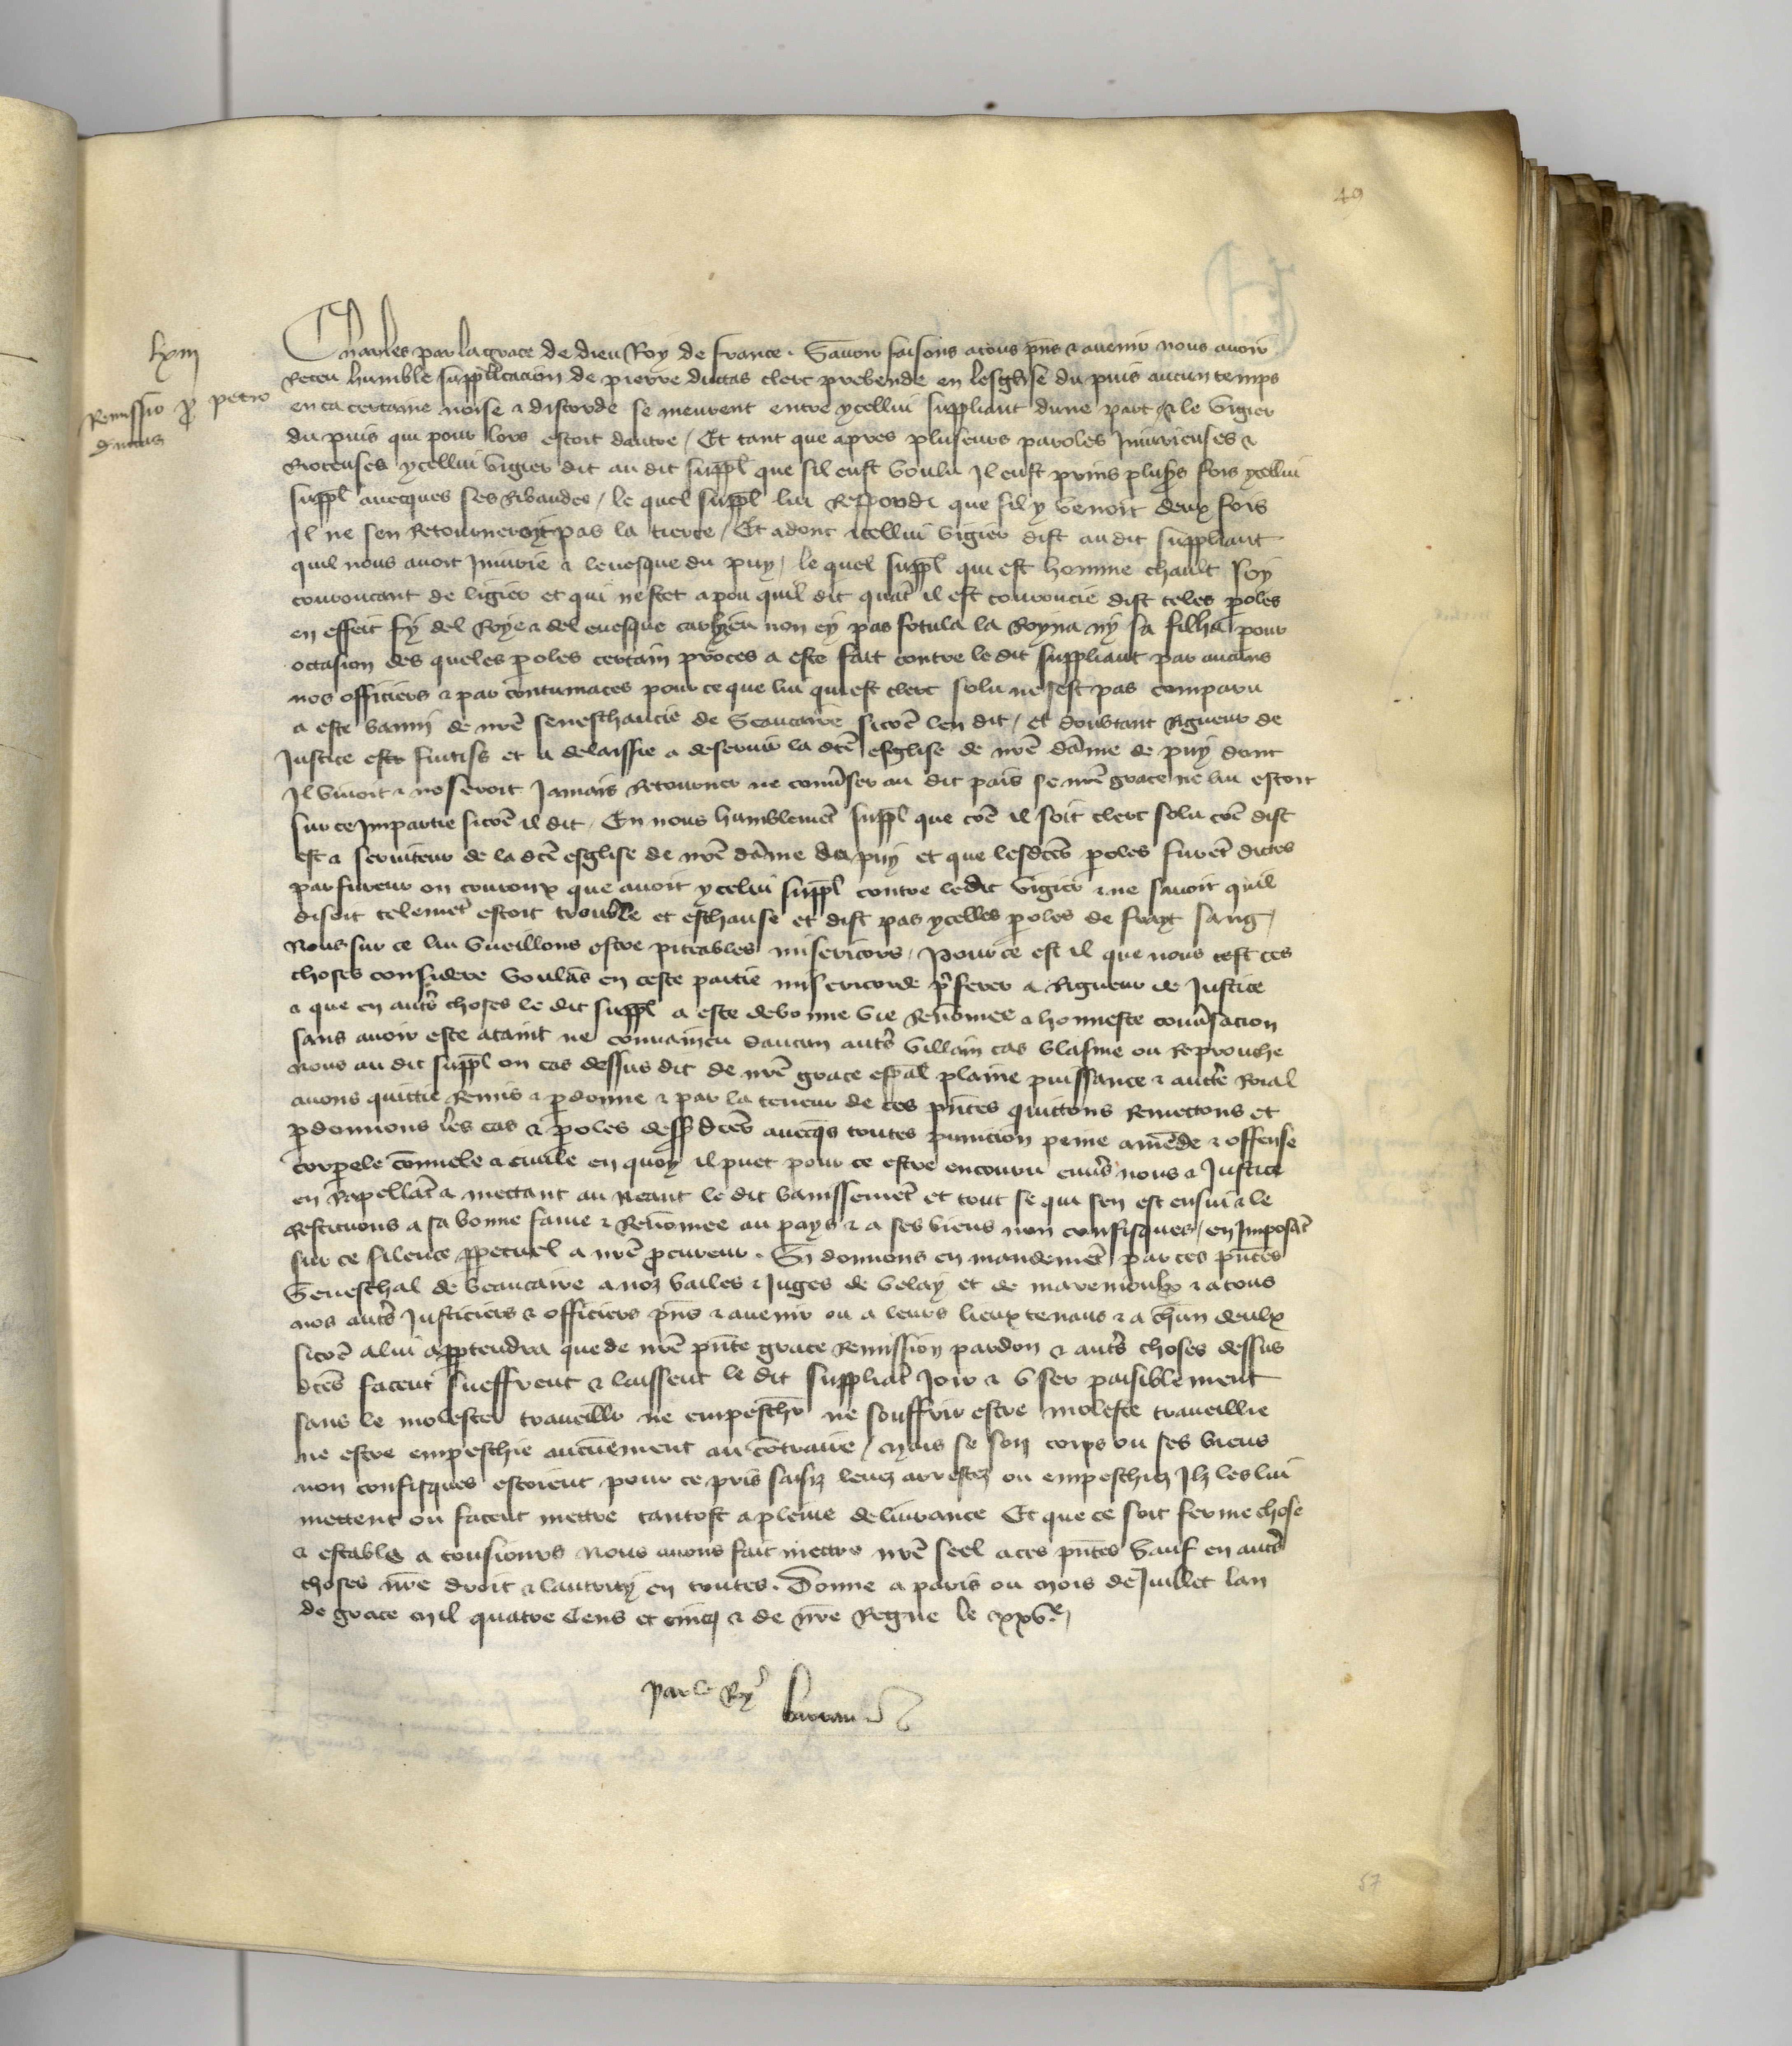 49
lxiii
Remissio p̱ petro
ductas
Charles par la grace de dieu Roy de france . Savoir faisons a tous pn̄s & avenir nous avoir
Receu humble supplicacion de pierre ductas clerc prebende en lesglise du puis aucun temps
enca certaine noise & discorde se meurent entre ycellui suppliant dune part & le vigier
du puis qui pour lors estoit dautre / Et tant que apres pluseurs paroles Iniurieuses &
Rioteuses ycellui vigier dit au dit suppl̄ que sil eust voulu Il eust prins plus̄s fois ycellui
suppl̄ avecques ses Ribaudes / le quel suppl̄ lui Respondi que sil y venoit deux fois
Il ne sen Retourneroit pas la tierce / Et adonc icellui vigier dist au dit suppliant
quil nous avoit Iniurie & levesque du puy / le quel suppl̄ qui est homme chault soy
couroucant de ligier et qui ne scet a pou quil dit quāt il est courroucie dist teles p̱oles
en effeit fy del Roye & del evesque car ieu non ey pas fotula la Royna ny sa filha pour
occasion des queles p̱oles certain proces a este fait contre le dit suppliant par aucuns
nos officiers & par contumaces pour ce que lui qui est clerc solu ne sest pas comparu
a este banni de nr̄e seneschaucie de Beaucaire sicōe len dit / et doubtant Rigueur de
Justice est fuitifs et a delaissie a deservir la dcē esglise de nr̄e dāme de puy dont
Il vivoit & noseroit Jamais Retourner ne conv̄ser au dit pais se nr̄e grace ne lui estoit
sur ce Impartie sicōe il dit / En nous humblemēt suppl̄ que cōe il soit clerc solu cōe dist
est & serviteur de la dcē esglise de nr̄e dāme du puy et que lesdcēs p̱oles furēt dictes
par fureur ou couroux que avoit ycelui suppl̄ contre le dit vigier & ne savoit quil
disoit telemēt estoit trouble et eschaufe et dist pas ycelles p̱oles de froyt sang /
Nous sur ce lui vueillons estre piteables misericors / Pour ce est il que nous
choses considere voulās en ceste partie misericorde p̄ferer a Rigueur de Justice
& que en autr̄s choses le dit suppl̄ a este de bonne vie Renōmee & honneste conv̄sacion
sans avoir este ataint ne convaincu daucun autr̄e villain cas blasme ou Reprouche
nous au dit suppl̄ ou cas dessus dit de nr̄e grace esp̄al plaine puissance & aucte Roial
avons quittie Remis & p̱donne & par la teneur de ces pn̄tes quittons Remettons et
p̱donnons les cas & p̱oles dess̄ dcēs avecq̄s toutes punicion peine amēde & offense
corp̱ele cr̄imele & civile en quoy il puet pour ce estre encouru env̄s nous & Justice
en Rapellāt & mettant au neant le dit banissemēt et tout se qui sen est ensui & le
Restituons a sa bonne fame & Renōmee au pays & a ses biens non confisques / en Imposāt
sur ce silence p̱petuel a nr̄e p̱cureur . Si donnons en mandemēt par ces pn̄tes
Seneschal de beaucaire a noz bailes & Juges de velay et de & a tous
nos autr̄s Justiciers & officiers pn̄s & avenir ou a leurs lieux tenans & a chūn deulx
sicōe a lui app̱tendra que de nr̄e pn̄te grace Remission pardon & autr̄s choses dessus
dcēs facent sueffrent & laissent le dit suppliāt Joir & user paisiblement
sans le molester traveillr̄ ne empeschr̄ ne souffrir estre moleste traveillie
ne estre empeschie aucunement au cōtraire / Mais se son corps ou ses biens
non confisques estoient pour ce pris saisiz levez arrestez ou empeschiez Ilz les lui
mettent ou facent mettre tantost a pleine delivrance Et que ce soit ferme chose
& estable a tousiours Nous avons fait mettre nr̄e seel a ces pn̄tes Sauf en autr̄s
choses nr̄e droit & lautruy en toutes . Donne a paris ou mois de Juillet lan
de grace mil quatre cens et cinq & de nr̄e Regne le xxv.e /
Par le Roy
barrau
57